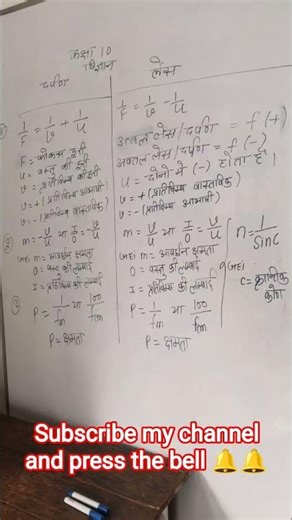 कक्षा 10
विज्ञान
दर्पण
1/F = 1/v + 1/u
F = फोकस दूरी
u = वस्तु की दूरी
v = प्रतिबिम्ब की दूरी
v = + (प्रतिबिम्ब आभासी)
v = - (प्रतिबिम्ब वास्तविक)
② m = -v/u या I/O = -v/u
जहाँ m = आवर्धन क्षमता
O = वस्तु की लम्बाई
I = प्रतिबिम्ब की लम्बाई
③ P = 1/fm या 100/fm
P = क्षमता
लेंस
1/F = 1/v - 1/u
उत्तल लेंस/दर्पण = f (+)
अवतल लेंस/दर्पण = f (-)
u = दोनों में (-) होता है।
v = + (प्रतिबिम्ब वास्तविक)
v = - (प्रतिबिम्ब आभासी)
m = v/u या I/O = v/u
जहाँ m = आवर्धन क्षमता
O = वस्तु की लम्बाई
I = प्रतिबिम्ब की लम्बाई
P = 1/fm या 100/fm
P = क्षमता
n = 1/sinc
जहाँ
c = क्रान्तिक
कोण
Subscribe my channel
and press the bell 🔔🔔